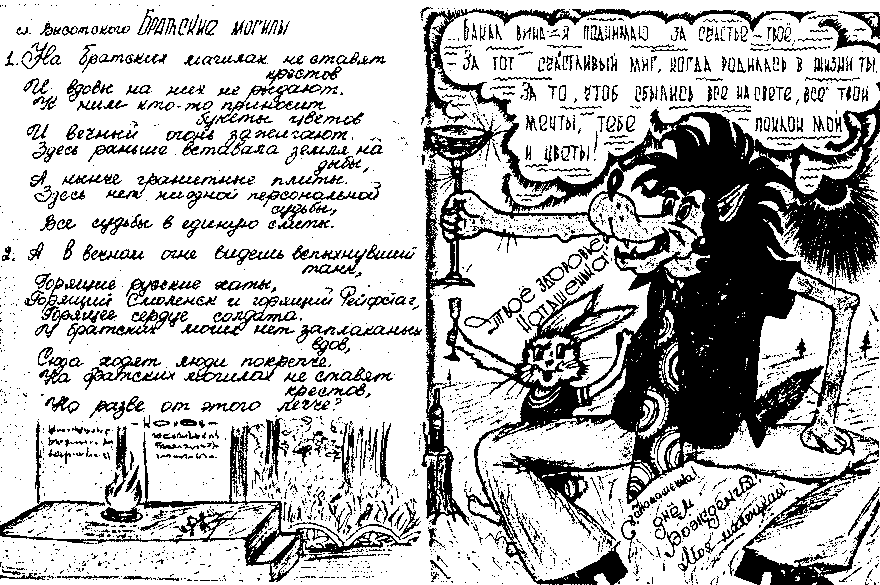 сл. Высотского Братские могилы
1. На братских могилах не ставят
крестов
И вдовы на них не рыдают.
К ним кто-то приносит
букеты цветов
И вечный огонь зажигают.
Здесь раньше вставала земля на
дыбы,
А нынче гранитные плиты.
Здесь нет ни одной персональной
судьбы,
Все судьбы в единую слиты.
2. А в вечном огне видешь вспыхнувший
танк,
Горящие русские хаты,
Горящий Смоленск и горящий Рейхстаг,
Горящее сердце солдата.
У братских могил нет заплаканых
вдов,
Сюда ходят люди покрепче.
На братских могилах не ставят
крестов,
Но разве от этого легче?
Бакал вина я поднимаю за счастье твоё...
За тот счастливый миг, когда родилась в жизни ты.
За то, чтоб сбылись все на свете, все твои
мечты, тебе поклон мой
и цветы!
Твоё здоровье,
Наташенька!
Наташенька!
С днём
Рождения!
Моя